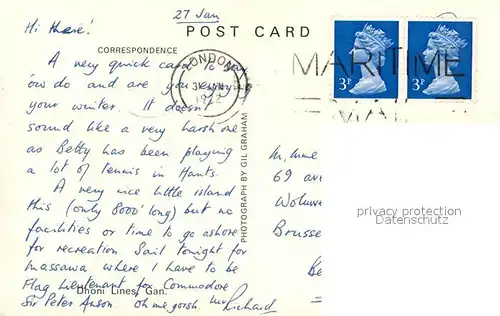 27 Jan
POST CARD
Hi there!
CORRESPONDENCE
A very quick card to say
'ow do and are you enjoying
your winter. It doesn't
sound like a very harsh one
as Betty has been playing
a lot of tennis in Hants.
A very nice little island
this (only 8000' long) but no
facilities or time to go ashore
for recreation. Sail tonight for
Massawa where I have to be
Flag Lieutenant for Commodore
Dhoni Lines, Gan.
Sir Peter Anson. Oh me gorsh.
Richard
PHOTOGRAPH BY GIL GRAHAM
LONDON
1972
MARITIME
MAIL
3P
3P
69 av
Woluw
Brusse
Be
privacy protection
Datenschutz